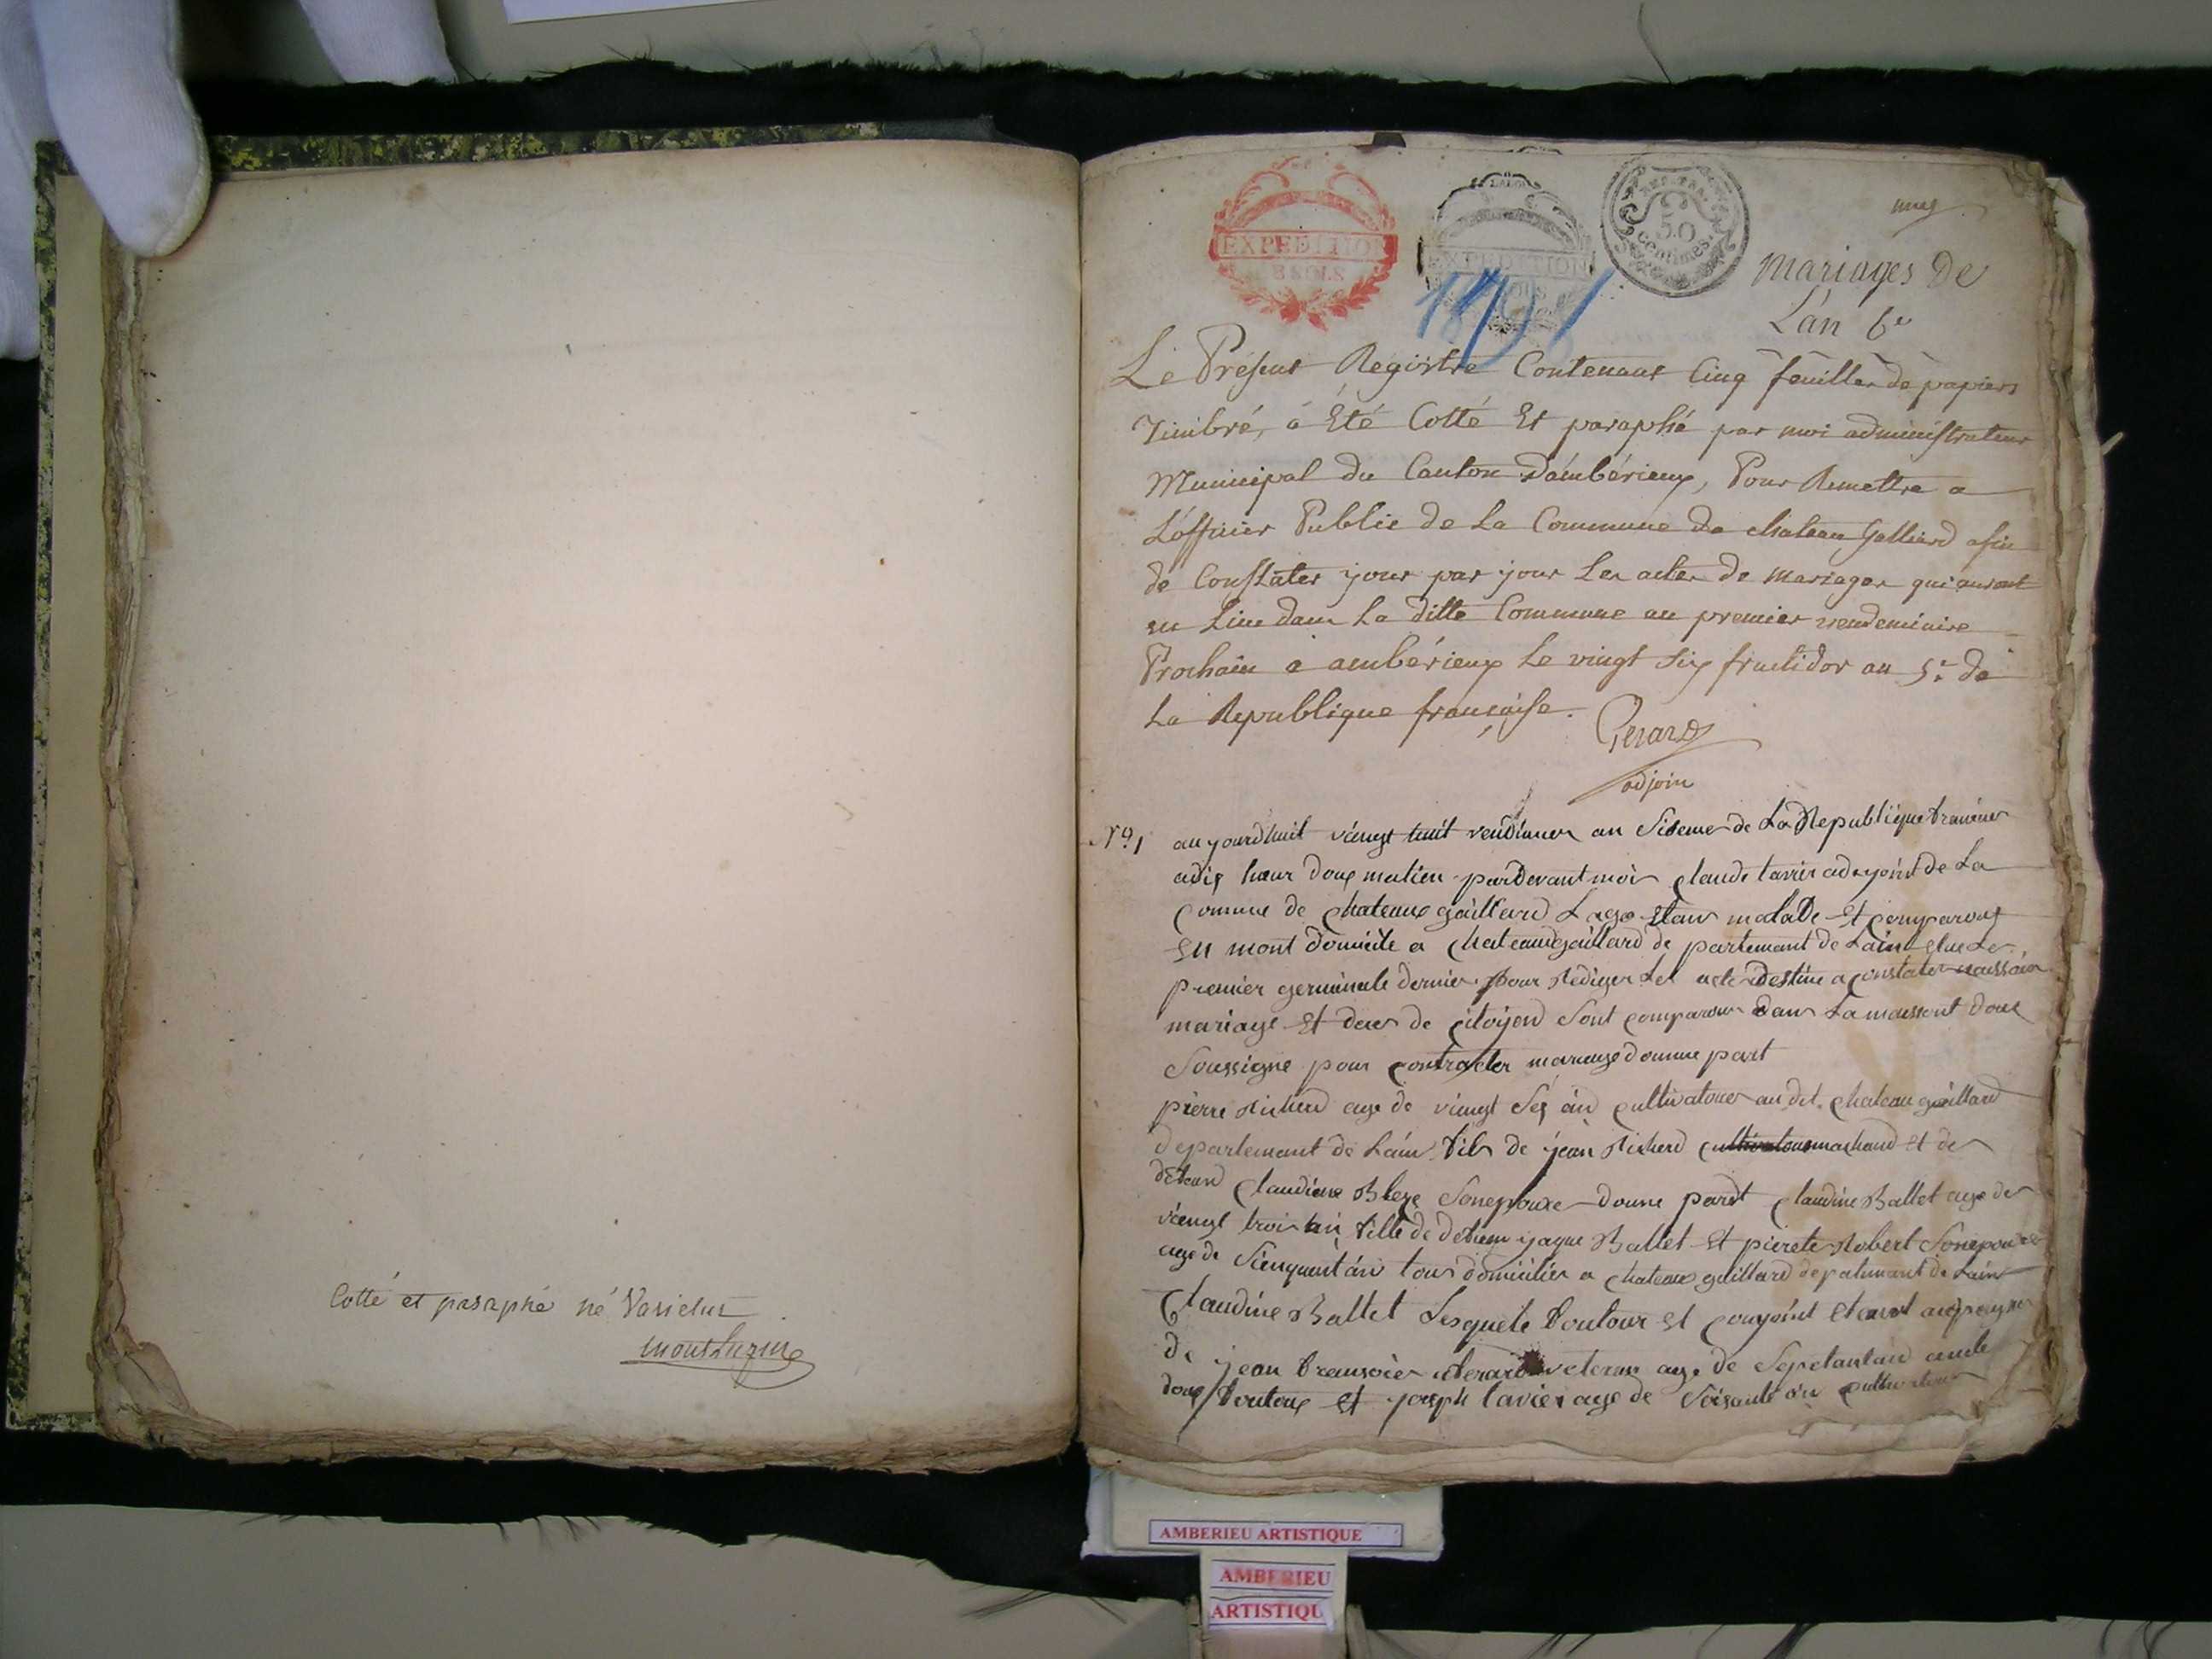 Cotté et paraphé né Varietur
EXPEDITION
3 SOLS
EXPEDITION
50
centimes
Mariages De
L'an 6e
Le Présent Registre Contenant Cinq feuilles de papiers
Timbré, à Été Cotté Et paraphé par moi administrateur
Municipal du Canton D'ambérieux, Pour Remettre a
L'officier Public de La Commune de chateau Galliard afin
de Constater jour par jour Les actes de mariages qui auront
eu Lieu dans La ditte Commune au premier vendemiaire
Prochain a ambérieux Le vingt Six fructidor an 5e de
La Republique française.
Gerard
adjoin
N° 1 aujourdhuit viengt huit vendimer an Siseme de La Republique
adix heur doux matien pardevant moi Claude tavier adyoint de La
Comune de Chateaux gaillard Lage etan malade Et
En mont Domicile a Chateaudgaillard de partemant de Lain elue Le
premier germinale dernier pour Rediger Les acte Destine a constater
mariage Et deces de Citoyend Sont comparous Dans La maissont doue
Soussigne pour contracter mariage doenne part
pierre Richerd age de viengt Ses and cultivatoux au dit Chateau gaillard
departemant de Lain fils de jean Richerd machand et de
defeand Claudiene Sonepouxe doune pardt Claudine Ballet age de
viengt trois an fille de defeun jaque Ballet Et pierete Robert Sonepouxe
age de Sienquent an tous domicilies a Chateau gaillard depatemant de Lain
Claudine Ballet Lesquele foutour et Conjoint etant
De jean age de Septantand
doux foutoux Et joseph tavier age de Soisante an cultivatoux
AMBERIEU ARTISTIQUE
AMBERIEU
ARTISTIQU